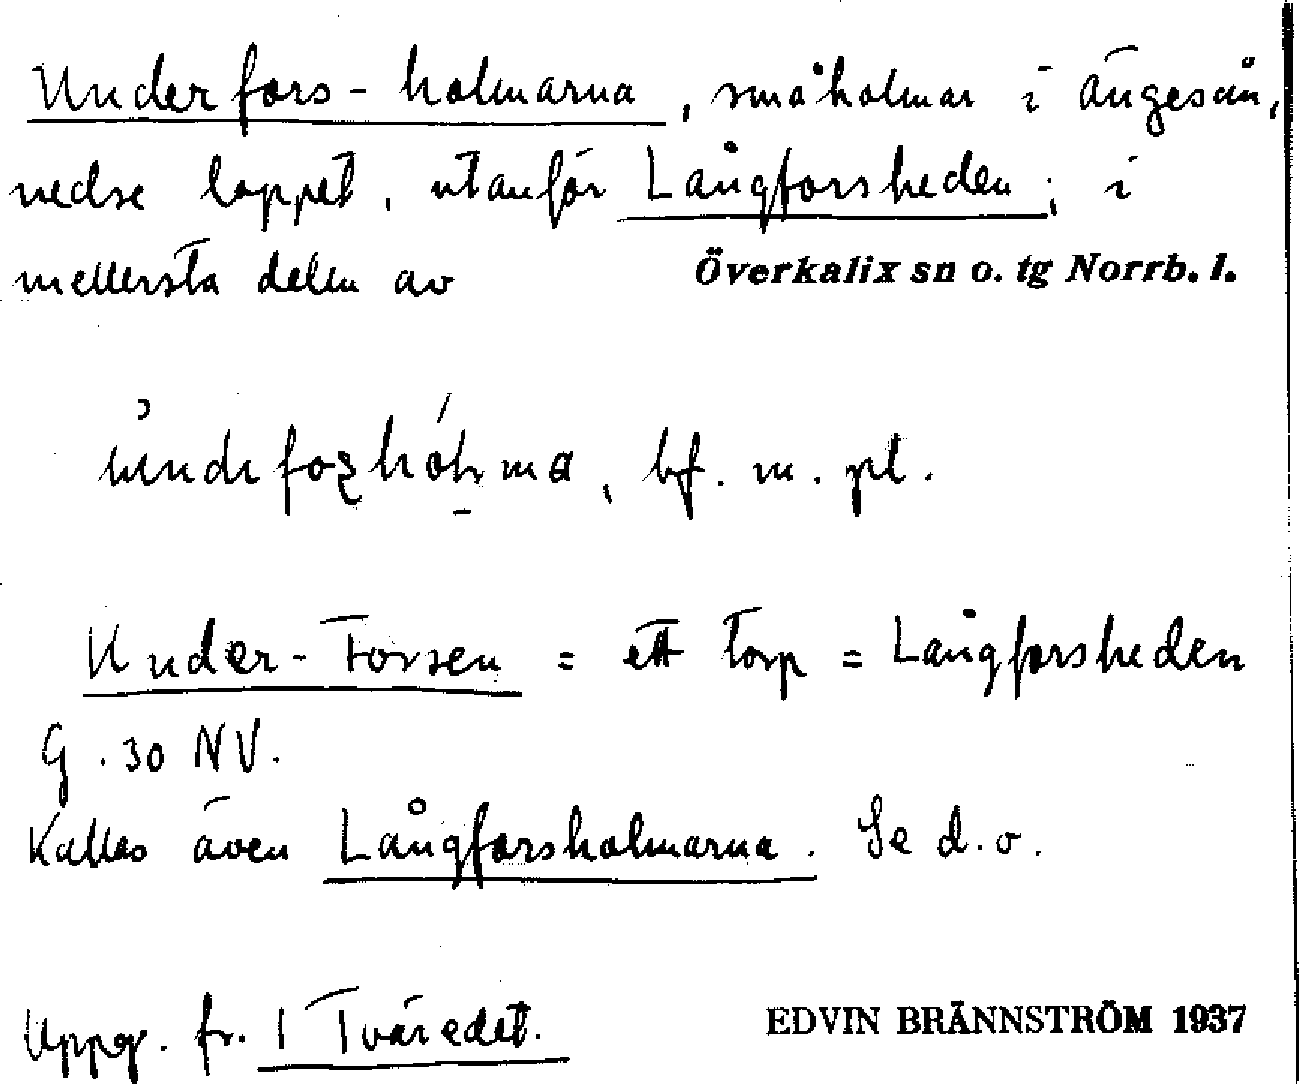 Underfors-holmarna, småholmar i Ängesån,
nedre loppet, utanför Långforsheden; i
mellersta delen av Överkalix sn o. tg Norrb. l.
bf. m. pl.
Under-Forsen = ett torp = Långforsheden
G. 30 NV.
Kallas även Långforsholmarna. Se d.o.
Uppg. fr. 1 Tväredet. EDVIN BRÄNNSTRÖM 1937